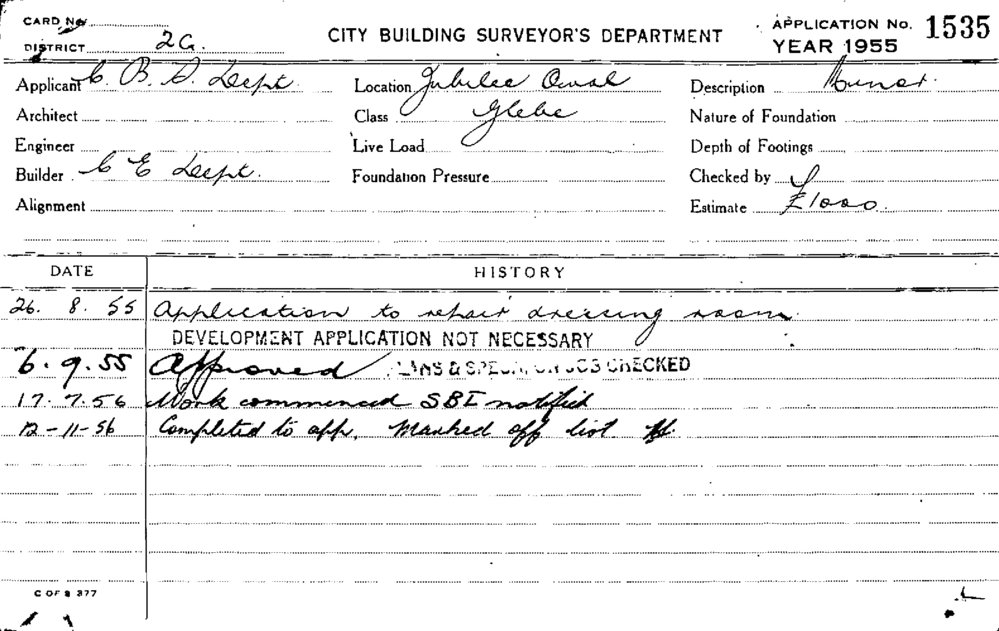 CARD No.
DISTRICT 2G.
CITY BUILDING SURVEYOR'S DEPARTMENT
APPLICATION No. 1535
YEAR 1955
Applicant C. B. S. Dept. Location Jubilee Oval Description Minor.
Architect Class Glebe Nature of Foundation
Engineer Live Load Depth of Footings
Builder C E Dept. Foundation Pressure Checked by
Alignment Estimate £1000.
DATE HISTORY
26. 8. 55 Application to repair dressing room.
DEVELOPMENT APPLICATION NOT NECESSARY
6. 9. 55 Approved PLANS & SPECN. CHECKED
17. 7. 56 Work commenced SBI notified
12-11-56 Completed to app. Marked off list
C OF S 377